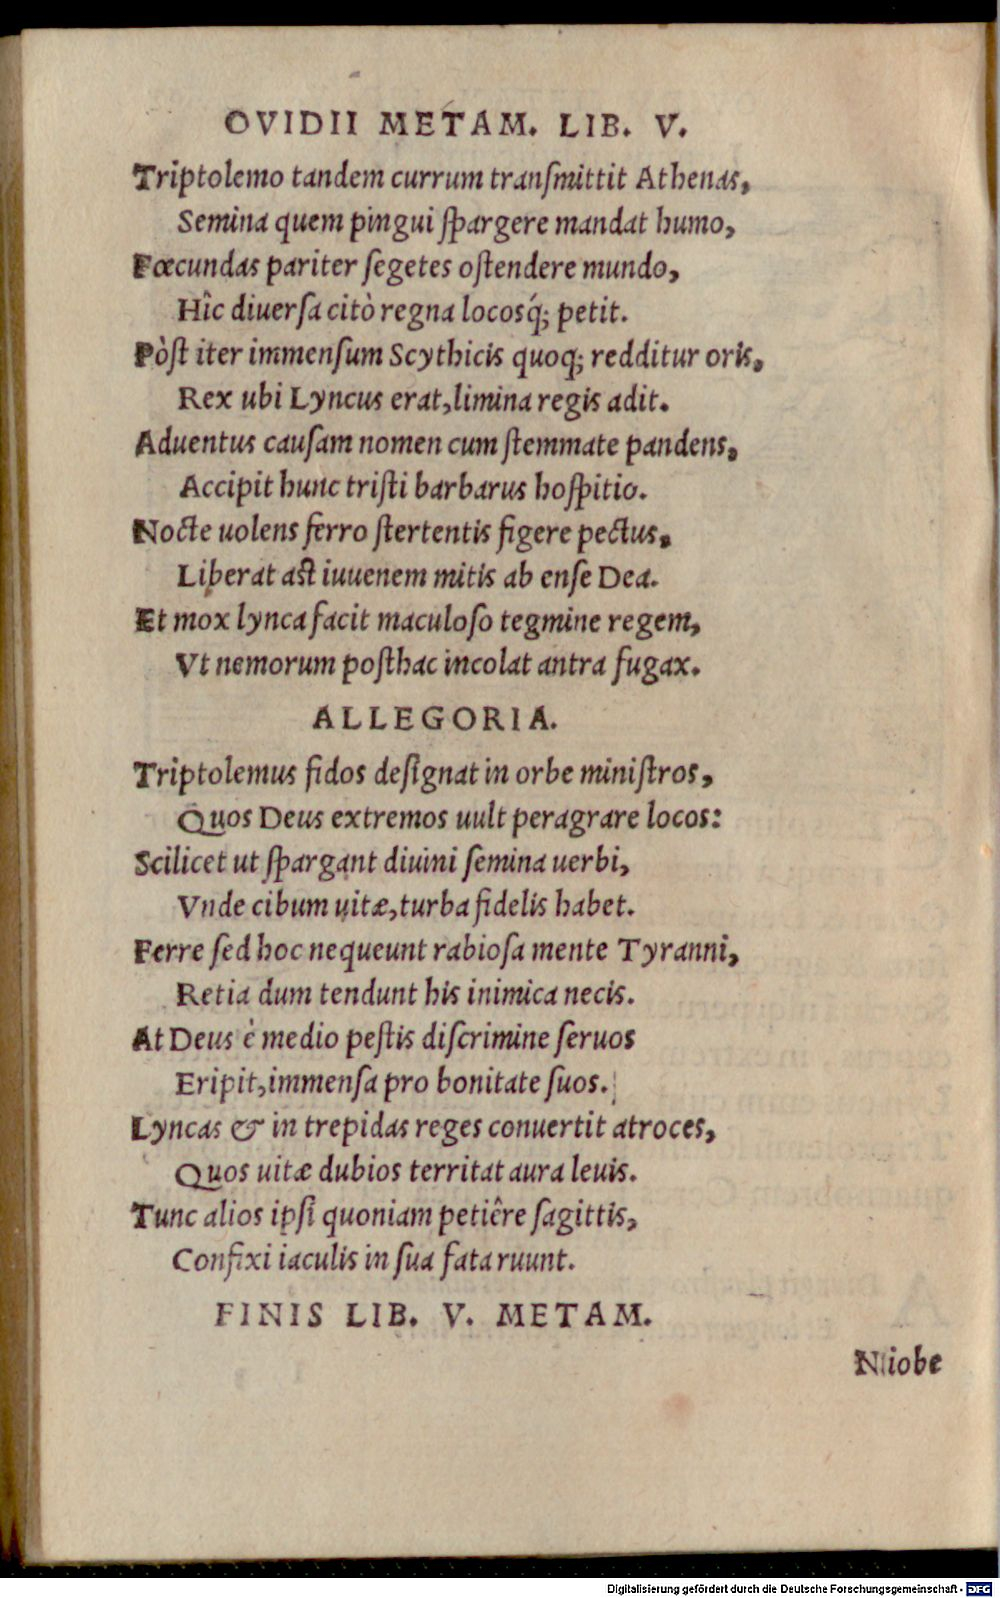 OVIDII METAM. LIB. V.
Triptolemo tandem currum tranſmittit Athenas,
Semina quem pingui ſpargere mandat humo,
Fœcundas pariter ſegetes oſtendere mundo,
Hîc diuerſa citò regna locosq́; petit.
Pòſt iter immenſum Scythicis quoq; redditur oris,
Rex ubi Lyncus erat, limina regis adit.
Aduentus cauſam nomen cum ſtemmate pandens,
Accipit hunc triſti barbarus hoſpitio.
Nocte uolens ferro ſtertentis figere pectus,
Liberat aſt iuuenem mitis ab enſe Dea.
Et mox lynca facit maculoſo tegmine regem,
Vt nemorum poſthac incolat antra fugax.
ALLEGORIA.
Triptolemus fidos deſignat in orbe miniſtros,
Quos Deus extremos uult peragrare locos:
Scilicet ut ſpargant diuini ſemina uerbi,
Vnde cibum uitæ, turba fidelis habet.
Ferre ſed hoc nequeunt rabioſa mente Tyranni,
Retia dum tendunt his inimica necis.
At Deus è medio peſtis diſcrimine ſeruos
Eripit, immenſa pro bonitate ſuos.
Lyncas & in trepidas reges conuertit atroces,
Quos uitæ dubios territat aura leuis.
Tunc alios ipſi quoniam petiêre ſagittis,
Confixi iaculis in ſua fata ruunt.
FINIS LIB. V. METAM.
Niobe
Digitalisierung gefördert durch die Deutsche Forschungsgemeinschaft - DFG